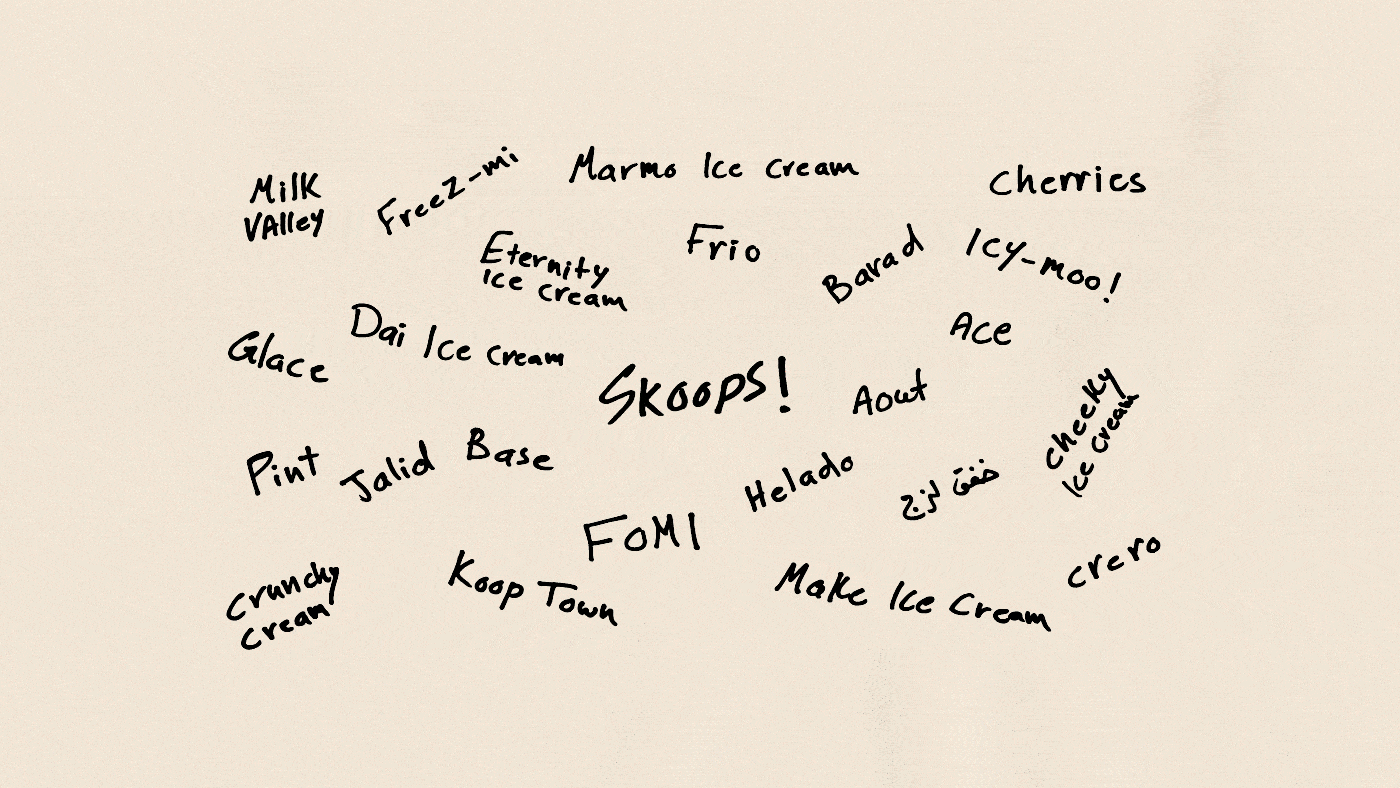 Marmo Ice Cream
Cherries
Milk
VAlley
Freez-mi
Eternity
Ice cream
Frio
Barad
Icy-moo!
Ace
Glace
Dai Ice cream
SKOOPS!
Aout
cheeky
Ice cream
Pint
Jalid
Base
Helado
خفق لزج
FOMI
crero
Crunchy
Cream
Koop Town
Make Ice Cream